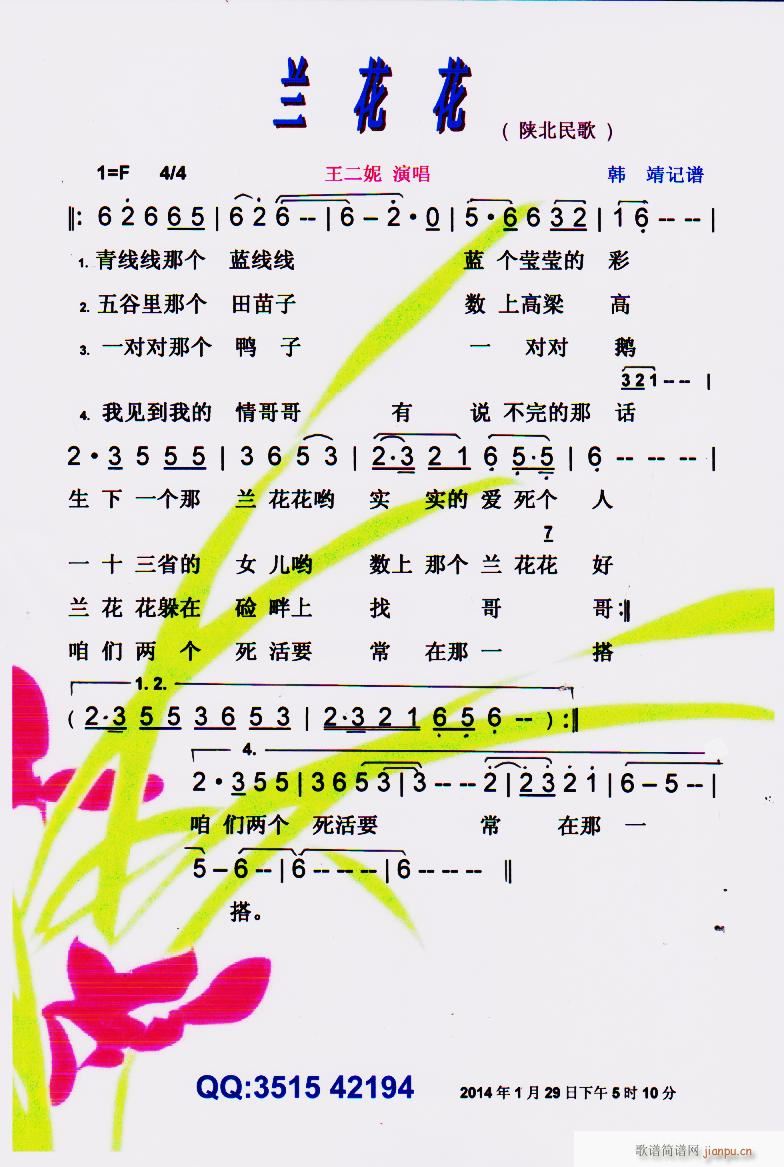 兰花花
( 陕北民歌 )
1=F 4/4 王二妮 演唱 韩 靖记谱
‖: 6 2 6 6 5 | 6 2 6 -- | 6 – 2 · 0 | 5 · 6 6 3 2 | 1 6 -- -- |
1. 青线线那个 蓝线线 蓝 个莹莹的 彩
2. 五谷里那个 田苗子 数 上高梁 高
3. 一对对那个 鸭 子 一 对对 鹅
3 2 1 -- -- |
4. 我见到我的 情哥哥 有 说 不完的那 话
2 · 3 5 5 5 5 | 3 6 5 3 | 2 · 3 2 1 6 5 · 5 | 6 -- -- -- |
生 下 一个那 兰 花花哟 实 实的 爱 死个 人
7
一 十 三省的 女 儿哟 数上 那个 兰 花花 好
兰 花 花躲在 硷 畔上 找 哥 哥:‖
咱 们 两 个 死 活要 常 在那 一 搭
1. 2.
( 2 · 3 5 5 3 6 5 3 | 2 · 3 2 1 6 5 6 -- ) :‖
4.
2 · 3 5 5 | 3 6 5 3 | 3 -- -- 2 | 2 3 2 1 | 6 – 5 -- |
咱 们两个 死活要 常 在那 一
5 – 6 -- | 6 -- -- -- | 6 -- -- -- ‖
搭。
QQ:3515 42194 2014 年 1 月 29 日下午 5 时 10 分
歌谱简谱网 jianpu.cn